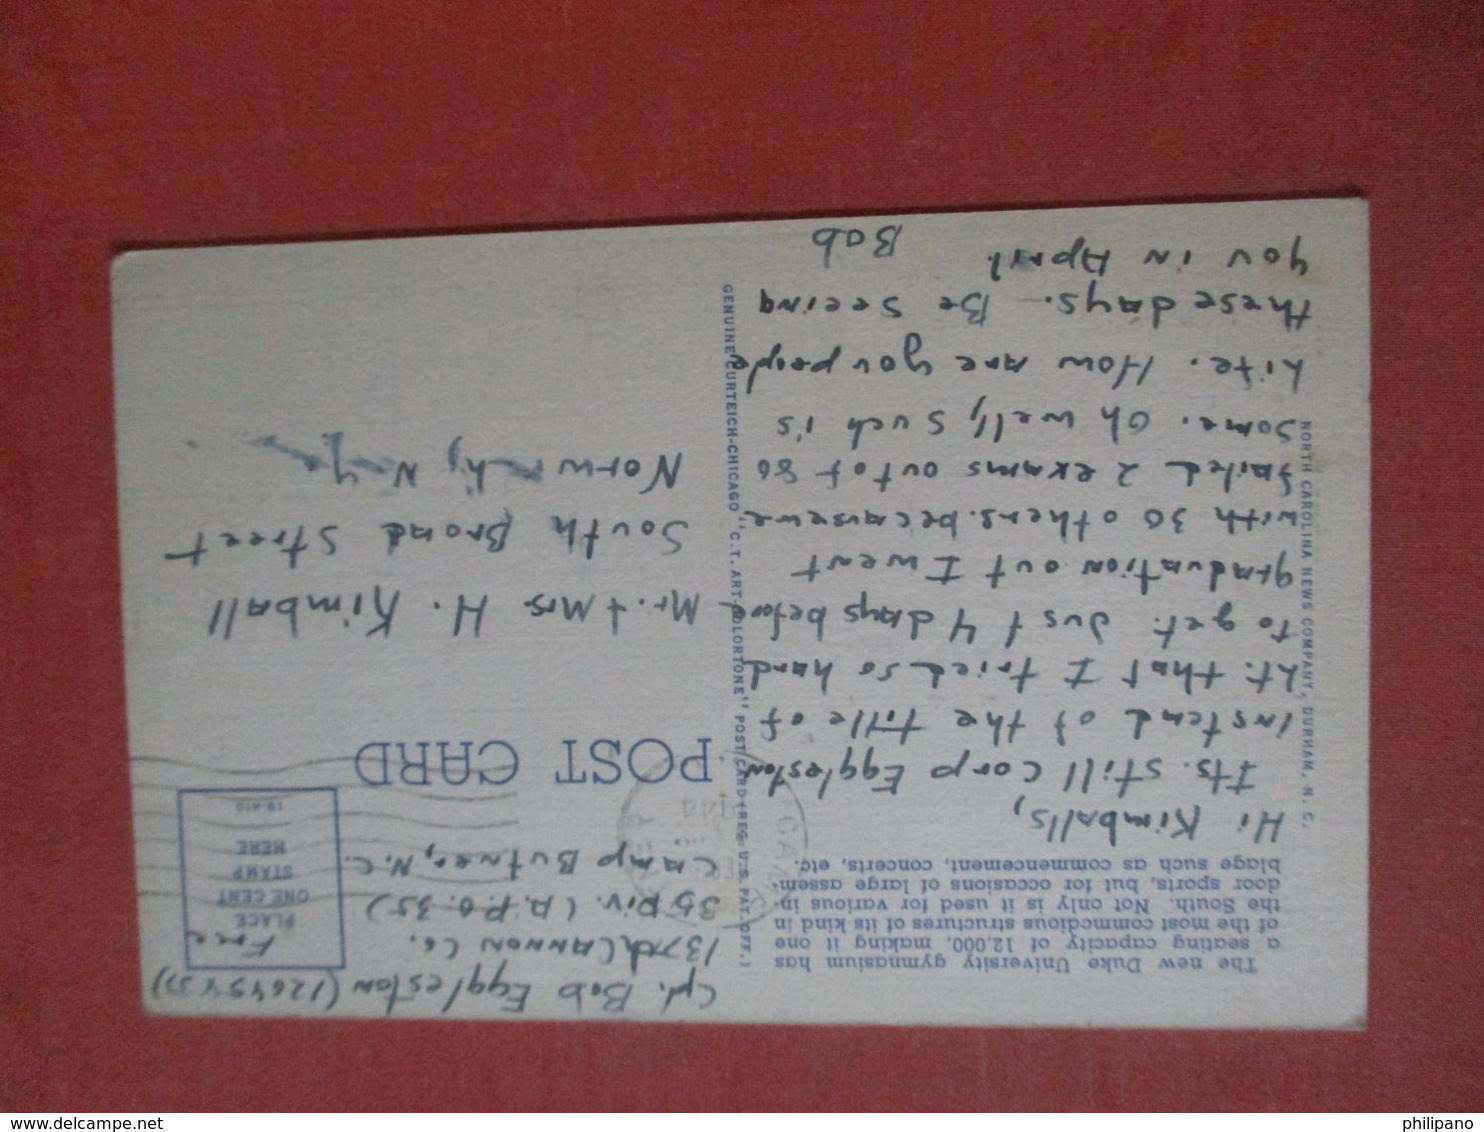 The new Duke University gymnasium has
a seating capacity of 12,000, making it one
of the most commodious structures of its kind in
the South. Not only is it used for various in-
door sports, but for occasions of large assem-
blage such as commencement, concerts, etc.
Hi Kimballs,
Its. still Corp Eggleston
instead of the title of
Lt. that I tried so hard
to get. Just 4 days before
graduation out I went
with 30 others. because we
failed 2 exams out of 80
some. Oh well, such is
Life. How are you people
these days. Be seeing
you in April.
Bob
NORTH CAROLINA NEWS COMPANY, DURHAM, N. C.
GENUINE CURTEICH-CHICAGO "C.T. ART-COLORTONE" POST CARD (REG. U.S. PAT. OFF.)
Cpl. Bob Eggleston
137th Cannon Co.
35 Div. (A.P.O. 35)
Camp Butner, N.C.
Free
PLACE
ONE CENT
STAMP
HERE
POST CARD
Mr. + Mrs H. Kimball
South Broad Street
Norwich, N.Y.
philipano
delcampe.net